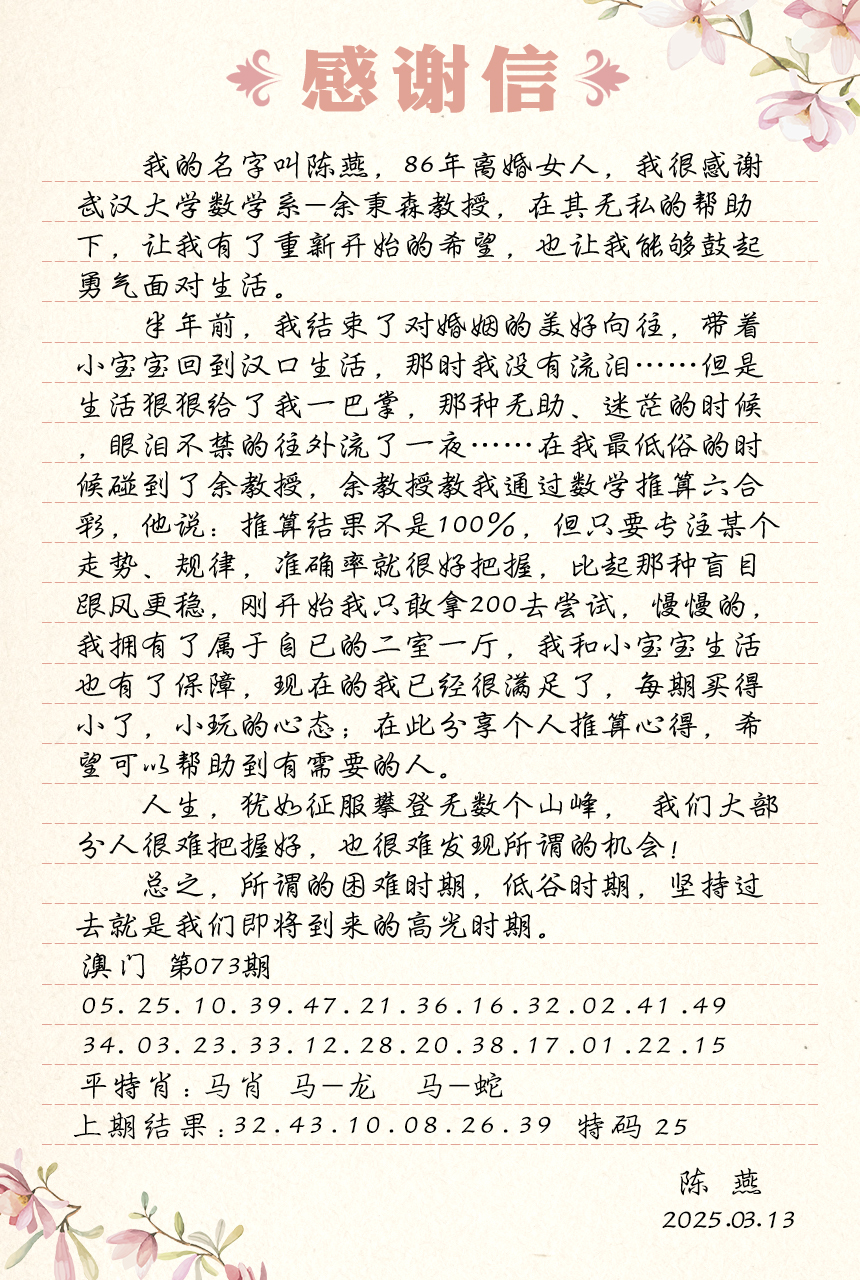 感谢信
我的名字叫陈燕，86年离婚女人，我很感谢
武汉大学数学系—余秉森教授，在其无私的帮助
下，让我有了重新开始的希望，也让我能够鼓起
勇气面对生活。
半年前，我结束了对婚姻的美好向往，带着
小宝宝回到汉口生活，那时我没有流泪……但是
生活狠狠给了我一巴掌，那种无助、迷茫的时候
，眼泪不禁的往外流了一夜……在我最低俗的时
候碰到了余教授，余教授教我通过数学推算六合
彩，他说：推算结果不是100%，但只要专注某个
走势、规律，准确率就很好把握，比起那种盲目
跟风更稳，刚开始我只敢拿200去尝试，慢慢的，
我拥有了属于自已的二室一厅，我和小宝宝生活
也有了保障，现在的我已经很满足了，每期买得
小了，小玩的心态；在此分享个人推算心得，希
望可以帮助到有需要的人。
人生，犹如征服攀登无数个山峰， 我们大部
分人很难把握好，也很难发现所谓的机会！
总之，所谓的困难时期，低谷时期，坚持过
去就是我们即将到来的高光时期。
澳门 第073期
05.25.10.39.47.21.36.16.32.02.41.49
34.03.23.33.12.28.20.38.17.01.22.15
平特肖：马肖 马—龙 马—蛇
上期结果：32.43.10.08.26.39 特码 25
陈 燕
2025.03.13